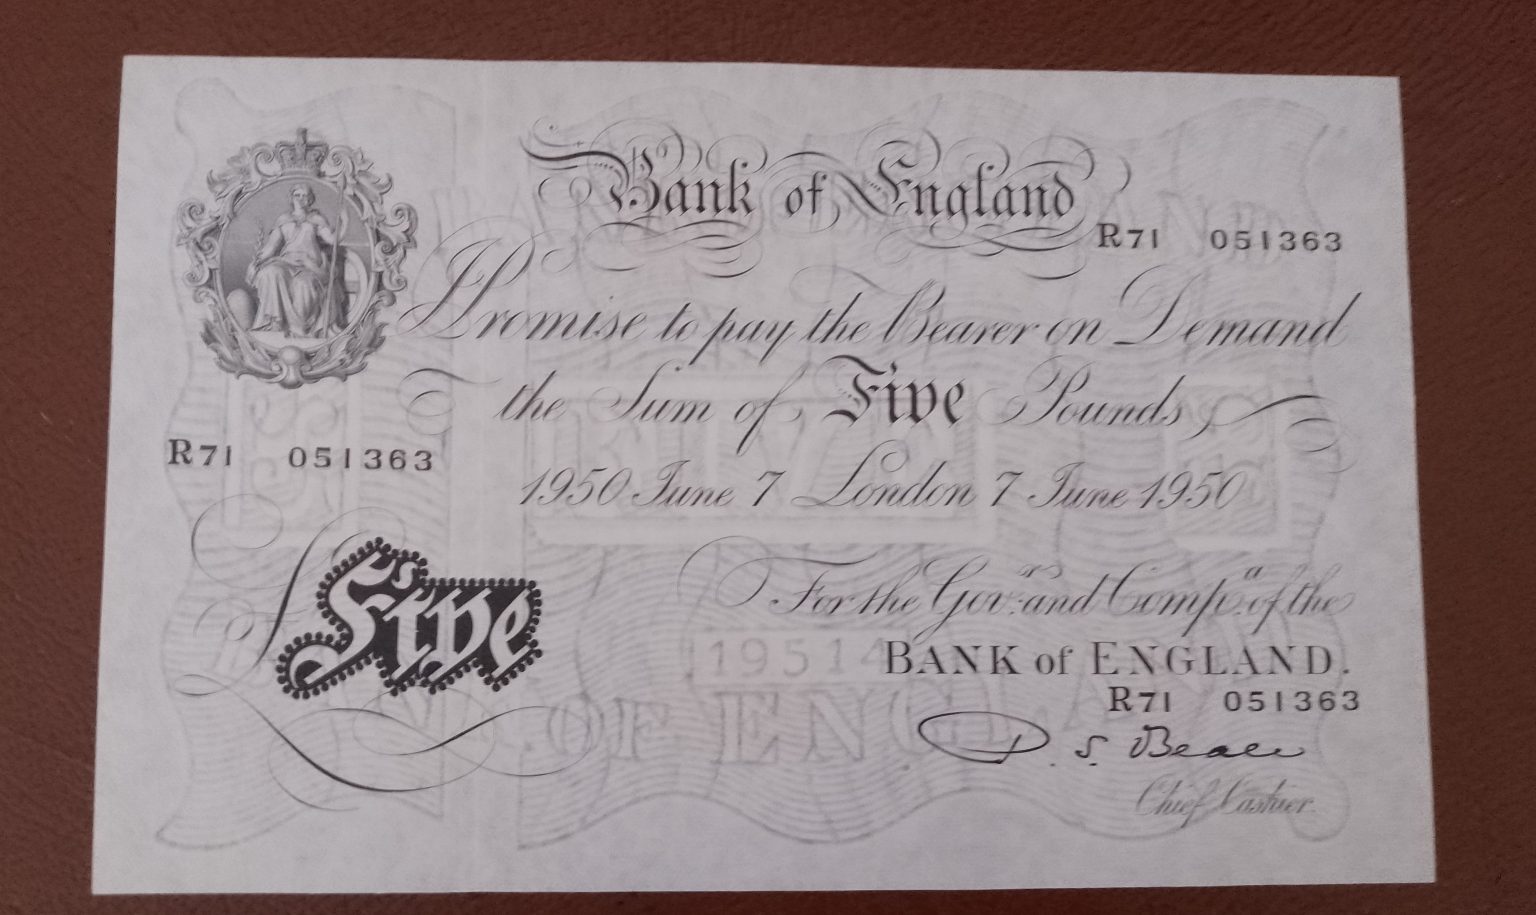 Bank of England
R71 051363
I Promise to pay the Bearer on Demand
the Sum of Five Pounds
R71 051363
1950 June 7 London 7 June 1950
For the Gov.rs and Comp.a of the
19514
BANK of ENGLAND.
Five
R71 051363
OF ENGLAND
P. S. Beale
Chief Cashier.